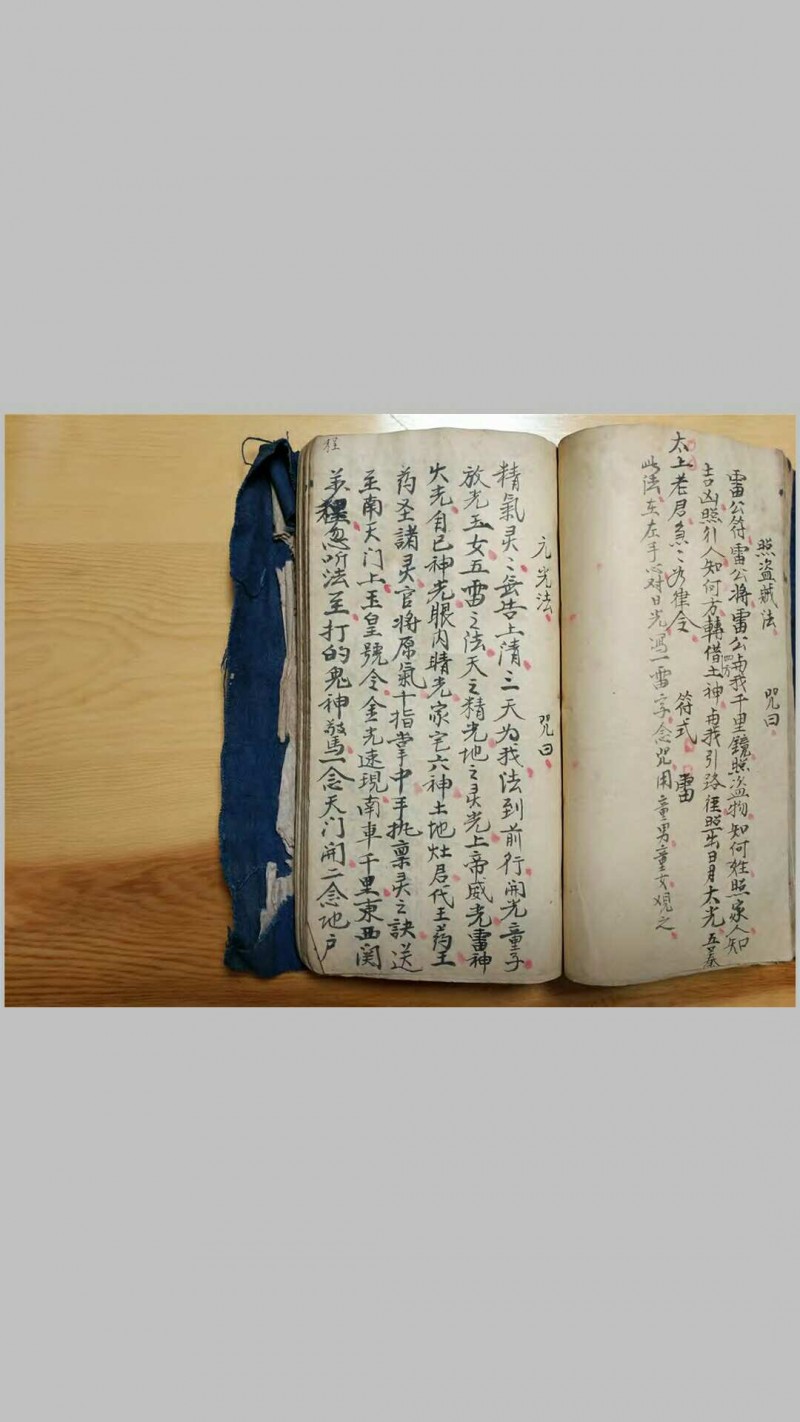 照盗贼法 咒曰
雷公符雷公将雷公与我千里鏡照盗物知何姓照家人知
吉凶照引人知何方轉借四方土神与我引路往照出日月太光五
太上老君急〻律令 符式 雷
此法在左手心对日光馮一雷字念咒用童男童女观之
元光法 咒曰
精氣灵〻告上清三天为我法到前行開光童子
放光玉女五雷之法天之精光地之灵光上帝威光雷神
火光自已神光眼内睛光家宅六神土地灶君代王药王
药圣諸灵官将原氣十指掌中手执禀灵之訣送
至南天门上玉皇號令金光速現南車千里東西関
忽听法至打的鬼神驚一念天门開二念地户
程